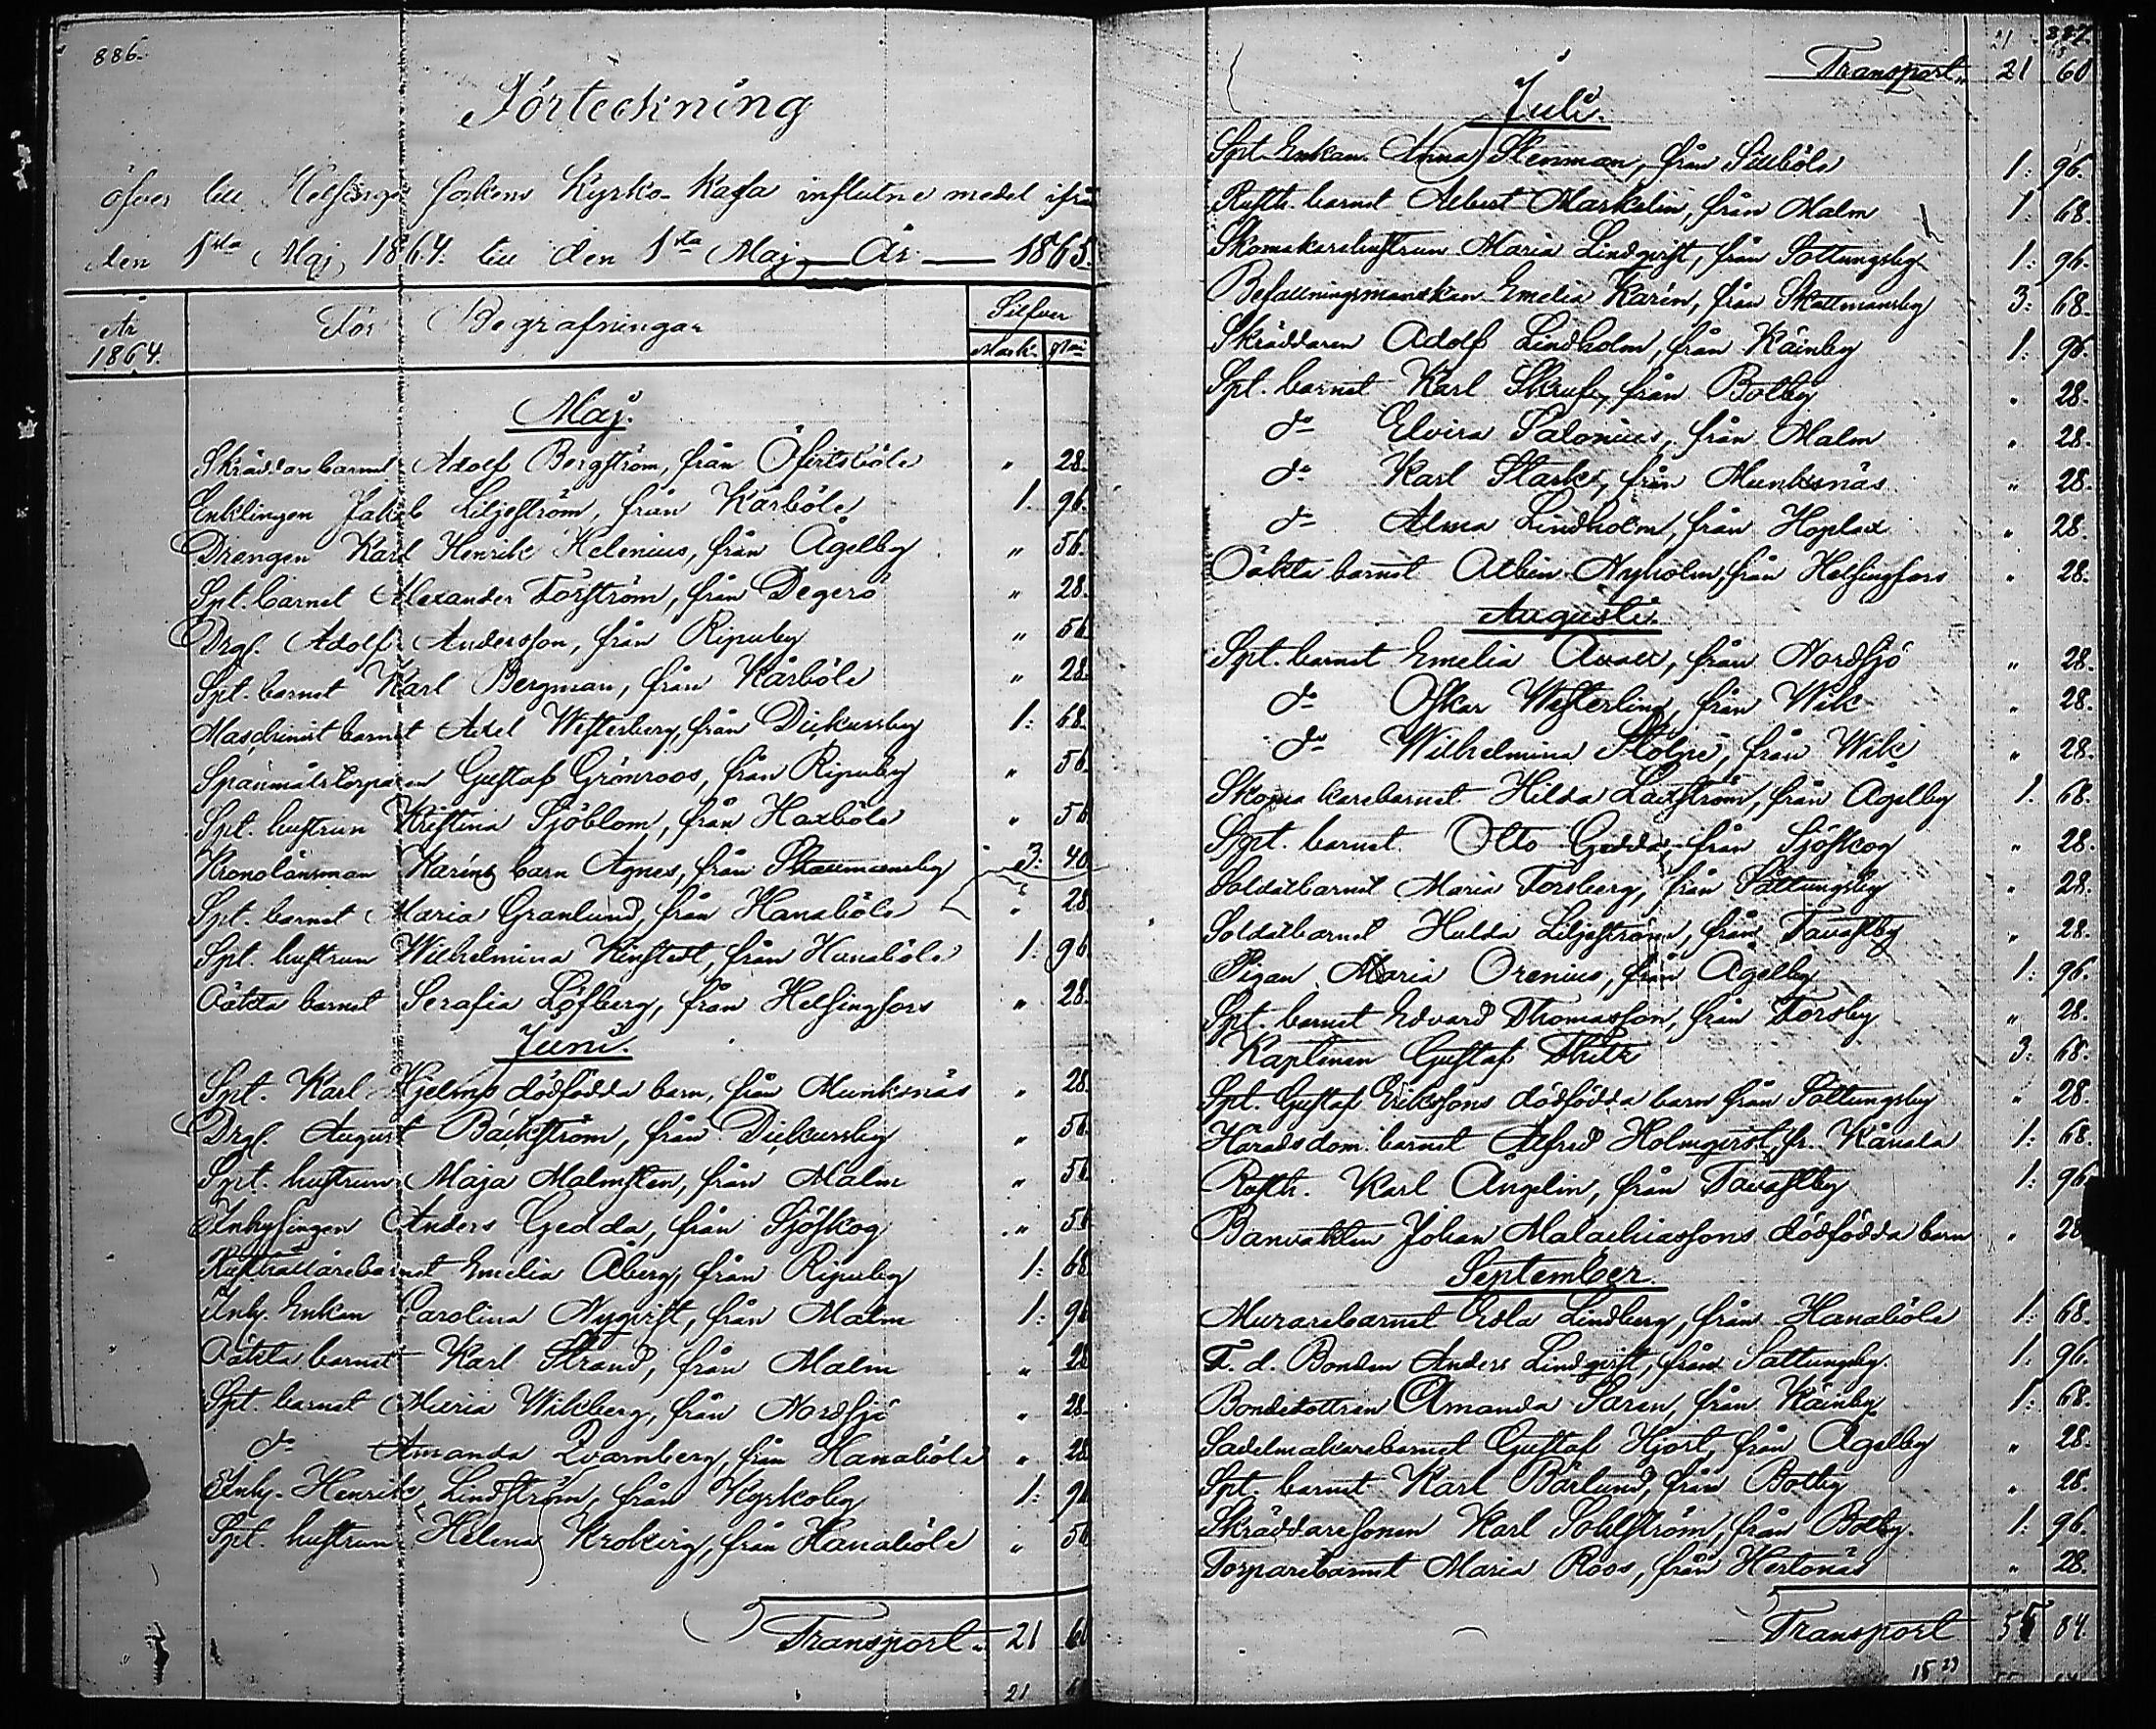 886.
Förteckning
öfver till Helsinge Sockens Kyrko-Kassa influtne medel ifrån
den 1sta Maj 1864 till den 1sta Maj År 1865.
År 1864. För Begrafningar Silfver Mark. Pni
Maj.
Skräddare barnet Adolf Bergström, från Öfvitsböle " 28.
Enklingen Jakob Liljeström, från Kårböle 1. 96.
Drengen Karl Henrik Helenius, från Ågelby " 56.
Spt. barnet Alexander Forström, från Degerö " 28.
Drgs. Adolf Andersson, från Ripuby " 56
Spt. barnet Karl Bergman, från Kårböle " 28.
Maschinist barnet Axel Westerberg, från Dickursby 1: 68.
Spanmålstorparen Gustaf Grönroos, från Ripuby " 56.
Spt. hustrun Kristina Sjöblom, från Haxböle " 56
Kronolänsman Karins barn Agnes, från Skattmansby 3: 40
Spt. barnet Maria Granlund, från Hanaböle " 28
Spt. hustrun Wilhelmina Kinstedt, från Hanaböle 1: 96
Oäkta barnet Serafia Löfberg, från Helsingfors " 28.
Juni.
Spt. Karl Hjelms dödfödda barn, från Munksnäs " 28.
Drgs. August Bäckström, från Dickursby " 56.
Spt. hustrun Maja Malmsten, från Malm " 56
Inhysingen Anders Gedda, från Sjöskog " 56
Rusthållarebarnet Emelia Åberg, från Ripuby 1: 68
Inhy. Enkan Carolina Nyqvist, från Malm 1: 96
Oäkta barnet Karl Strand, från Malm " 28
Spt. barnet Maria Wikberg, från Nordsjö " 28.
do Amanda Qvarnberg, från Hanaböle " 28
Inhy. Henrik Lindström, från Kyrkoby 1: 96
Spt. hustrun Helena Krokerg, från Hanaböle " 56
Transport " 21 60
21
887.
21
Transport " 21 60
Juli.
Spt. Enkan Anna Stenman, från Sillböle 1: 96.
Rusth. barnet Albert Markelin, från Malm 1: 68.
Skomakarehustrun Maria Lindqvist, från Sottungsby 1: 96.
Befallningsmanskan Emelia Karin, från Skattmansby 3: 68.
Skräddaren Adolf Lindholm, från Käinby 1: 96.
Spt. barnet Karl Skruf, från Botby " 28.
do Elvira Salonius, från Malm " 28.
do Karl Stark, från Munksnäs " 28.
do Alma Lindholm, från Hoplax " 28.
Oäkta barnet Albin Nyholm, från Helsingfors " 28.
Augusti.
Spt. barnet Emelia från Nordsjö " 28.
do Oskar Westerling från Wik " 28.
do Wilhelmina Stolpe, från Wik " 28.
Skomakarebarnet Hilda Laxström, från Ågelby 1: 68.
Spt. barnet Otto Gedda, från Sjöskog " 28.
Soldatbarnet Maria Forsberg, från Sottungsby " 28.
Soldatbarnet Hulda Liljeström, från Tavastby " 28.
Pigan Maria Orenius, från Ågelby 1: 96.
Spt. barnet Edvard Thomasson, från Forsby " 28.
Kaptenen Gustaf 3: 68.
Spt. Gustaf Erikssons dödfödda barn från Sottungsby " 28.
Häradsdom. barnet Alfred Holmqvist, fr. Kånala 1: 68.
Rusth. Karl Angelin, från Tavastby 1: 96
Banvakten Johan Malachiassons dödfödda barn " 28
September.
Murarebarnet Edla Lindberg, från Hanaböle 1: 68.
F. d. Bonden Anders Lindqvist, från Sottungsby. 1: 96.
Bondedottran Amanda Saren, från Käinby 1: 68.
Sadelmakarebarnet Gustaf Hjort, från Ågelby " 28.
Spt. barnet Karl Bärlund, från Botby " 28.
Skräddaresonen Karl Sohlström, från Botby. 1: 96.
Torparebarnet Maria Roos, från Hertonäs " 28.
Transport 55 84.